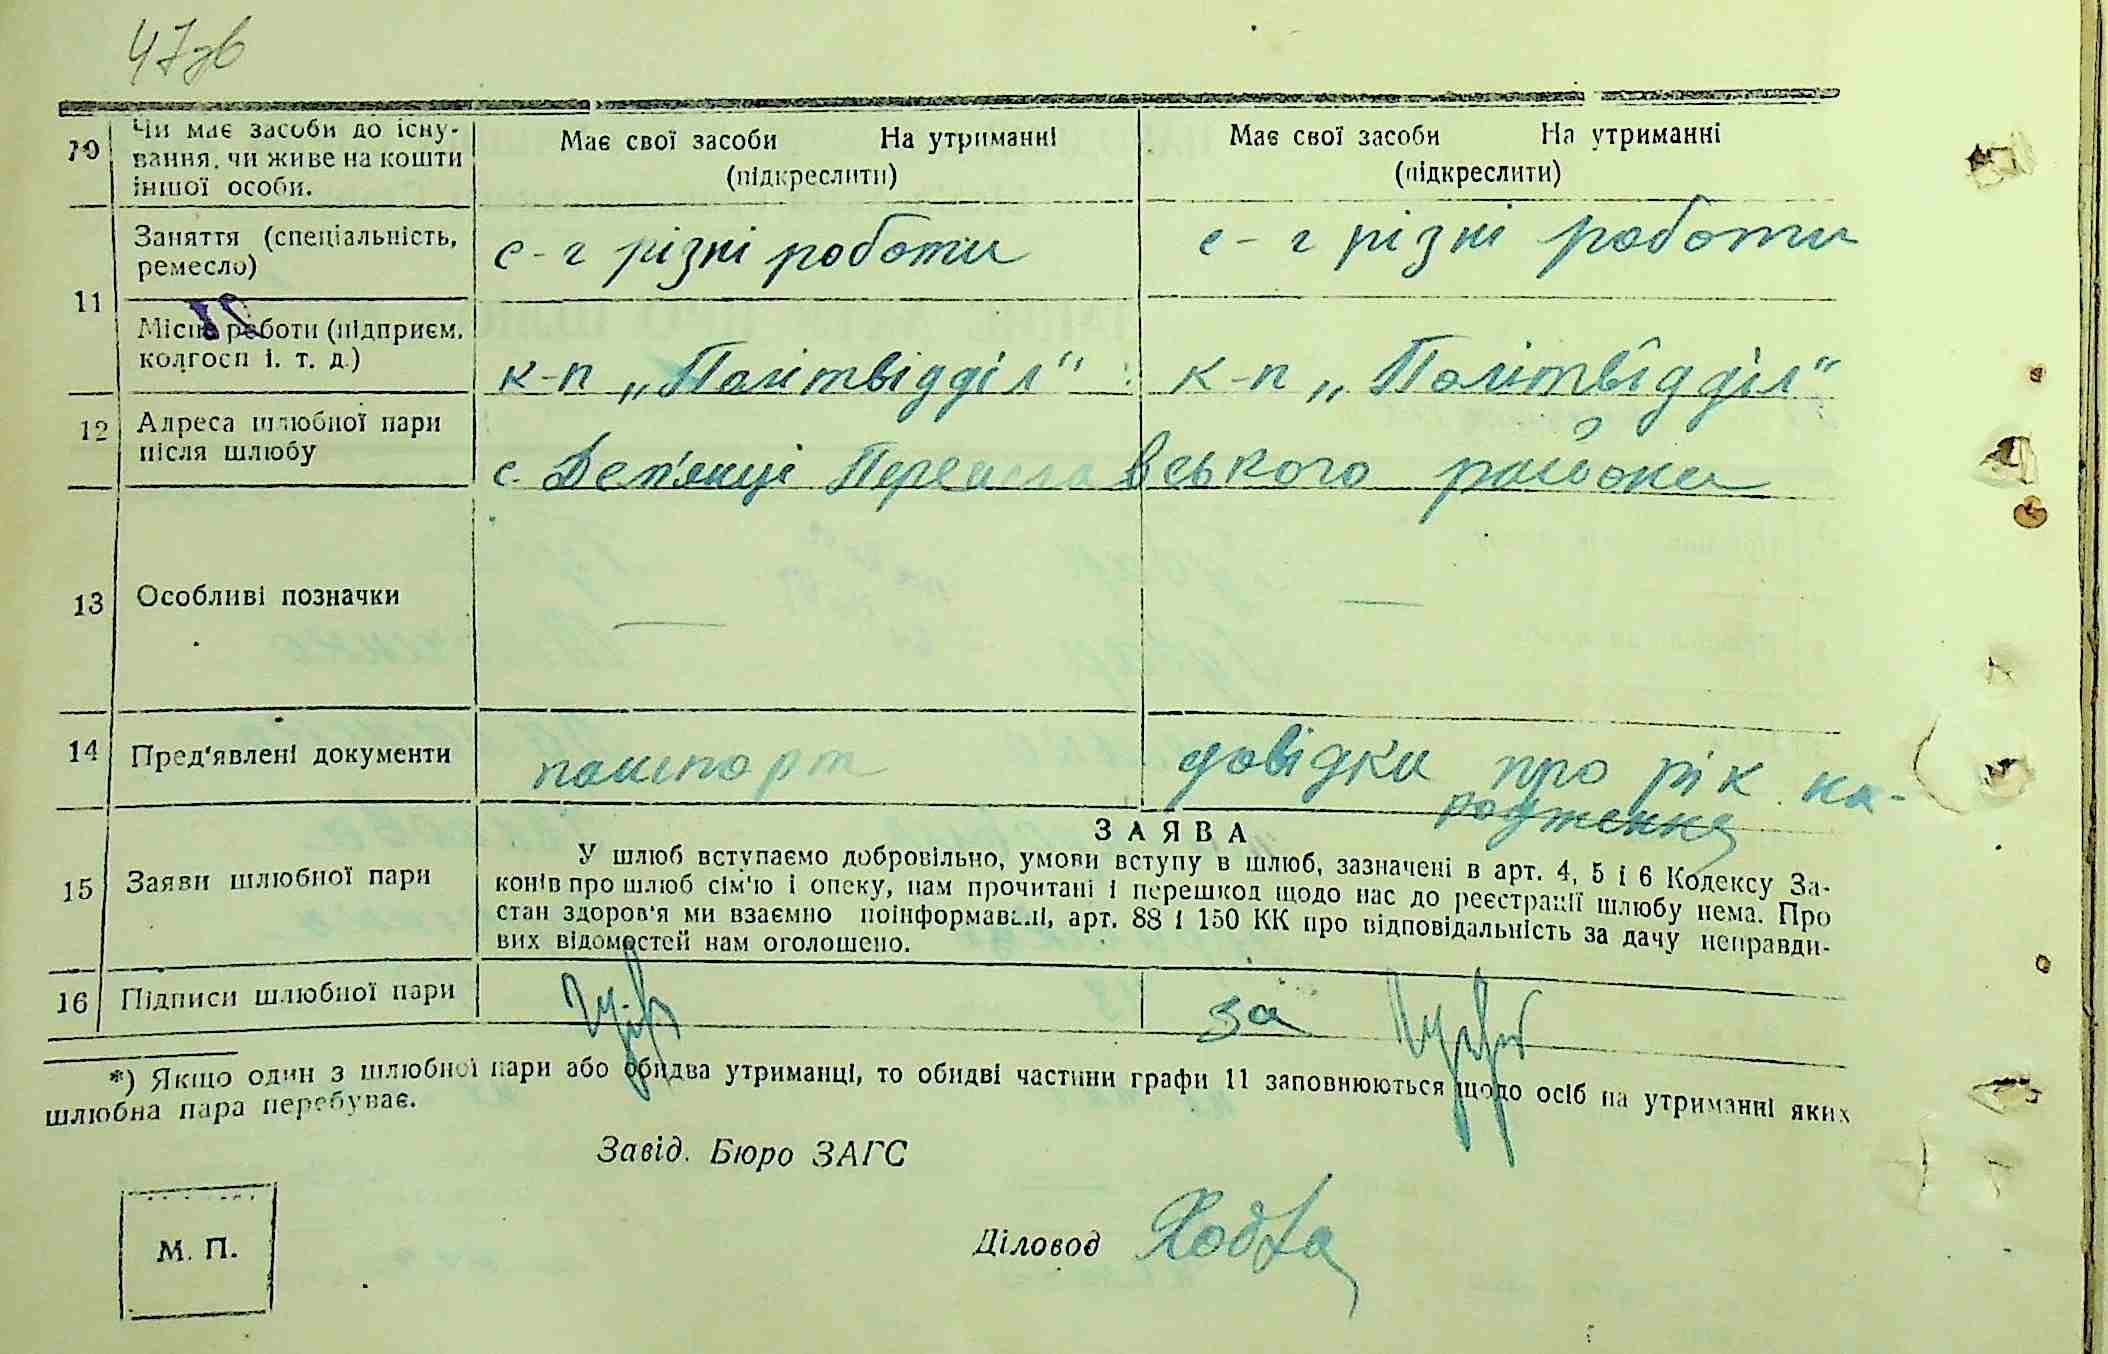 47зв
10 Чи має засоби до існу-
вання, чи живе на кошти
іншої особи.
Має свої засоби На утриманні
(підкреслити)
Має свої засоби На утриманні
(підкреслити)
11 Заняття (спеціальність,
ремесло)
с-г різні роботи
с-г різні роботи
Місце роботи (підприєм.
колгосп і. т. д.)
к-п „Політвідділ“
к-п „Політвідділ“
12 Адреса шлюбної пари
після шлюбу
с. Дем'янці Переяславського району
13 Особливі позначки
—
—
14 Пред'явлені документи
паспорт
довідка про рік на-
родження
15 Заяви шлюбної пари
ЗАЯВА
У шлюб вступаємо добровільно, умови вступу в шлюб, зазначені в арт. 4, 5 і 6 Кодексу За-
конів про шлюб сім'ю і опеку, нам прочитані і перешкод щодо нас до реєстрації шлюбу нема. Про
стан здоров'я ми взаємно поінформавані, арт. 88 і 150 КК про відповідальність за дачу неправди-
вих відомостей нам оголошено.
16 Підписи шлюбної пари
за
*) Якщо один з шлюбної пари або обидва утриманці, то обидві частини графи 11 заповнюються щодо осіб на утриманні яких
шлюбна пара перебуває.
Завід. Бюро ЗАГС
М. П.
Діловод